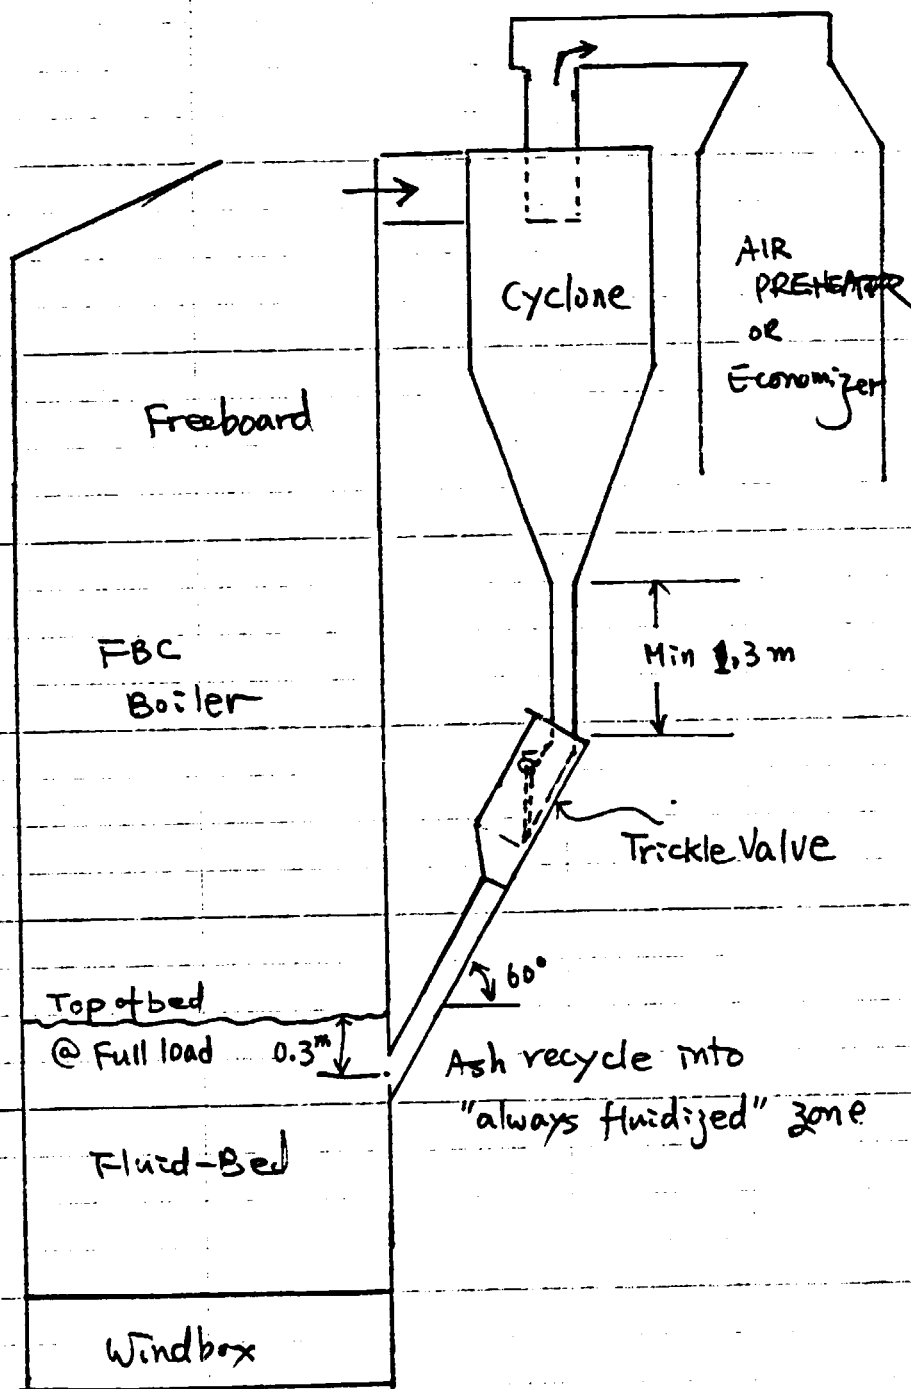 Cyclone
AIR
PREHEATER
OR
Economizer
Freeboard
FBC
Boiler
Min 1.3 m
Trickle Valve
60°
Top of bed
@ Full load
0.3 m
Ash recycle into
"always fluidized" zone
Fluid-Bed
Windbox